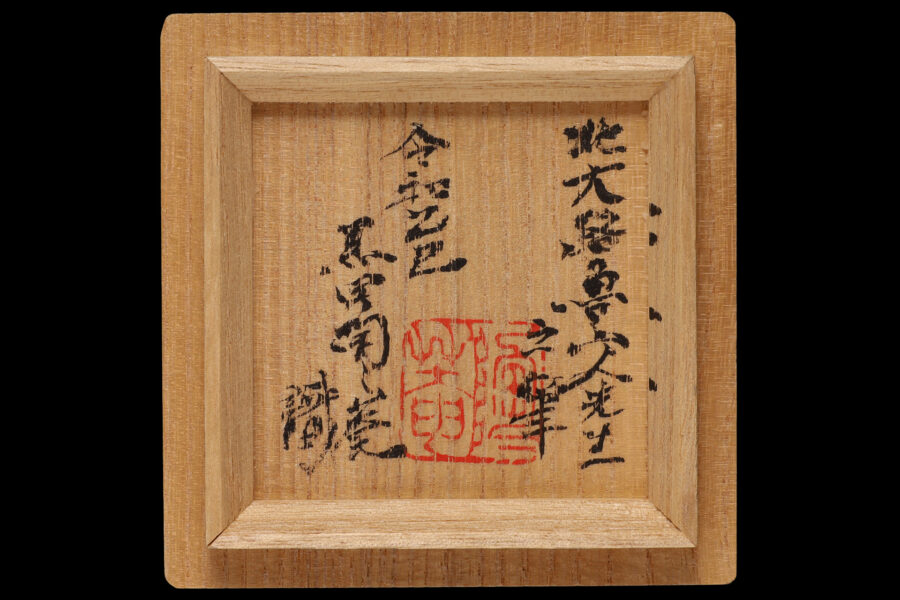 北大路魯山人先生
之筆
令和乙巳
黒田草々菴
識